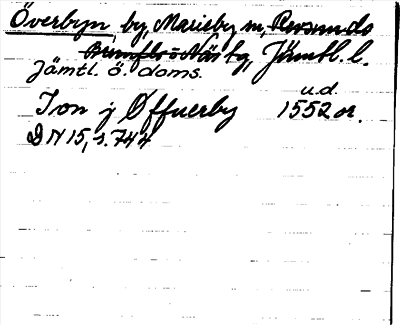 Överbyn, by, Marieby sn, Revsunds
Brunflo o Näs tg, Jämtl. l.
Jämtl. ö. doms.
u.d.
Ion j Øffuerby 1552 or.
DN 15, s. 744